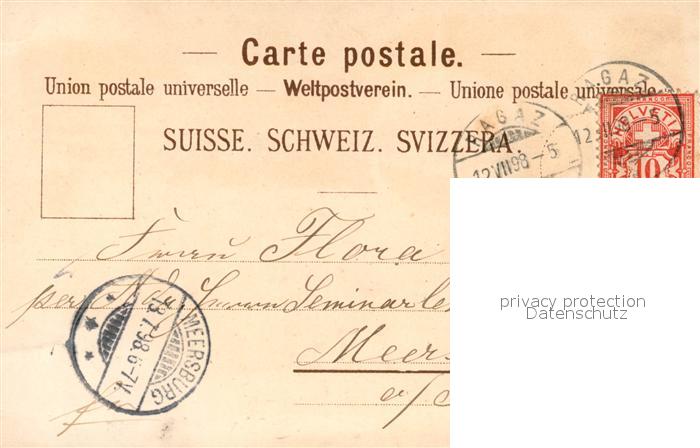 Carte postale.
Union postale universelle — Weltpostverein. — Unione postale universale
SUISSE. SCHWEIZ. SVIZZERA.
RAGAZ
12.VII.98-5
RAGAZ
12.VII
HELVETIA
10
Flora
Seminarle
Meers
a/
MEERSBURG
98.6-7V.
privacy protection
Datenschutz